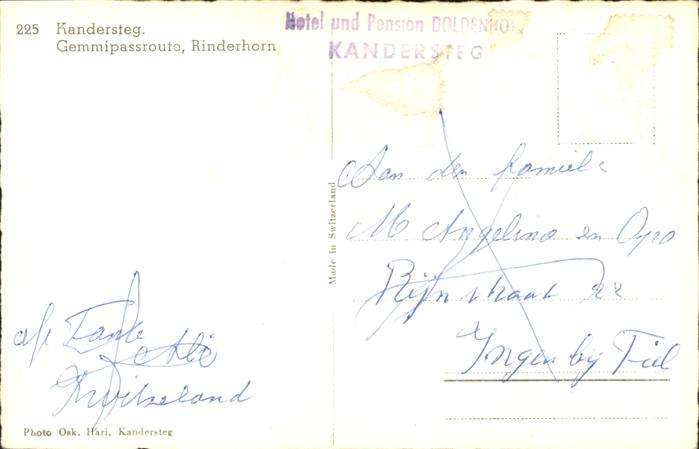 225 Kandersteg.
Gemmipassroute, Rinderhorn
Hotel und Pension DOLDENHORN
KANDERSTEG
Made in Switzerland
Aan den familie
M Angelino en Opa
Rijnstraat 22
Ingen bij Tiel
afz Tante
Alie
Zwitserland
Photo Osk. Hari, Kandersteg